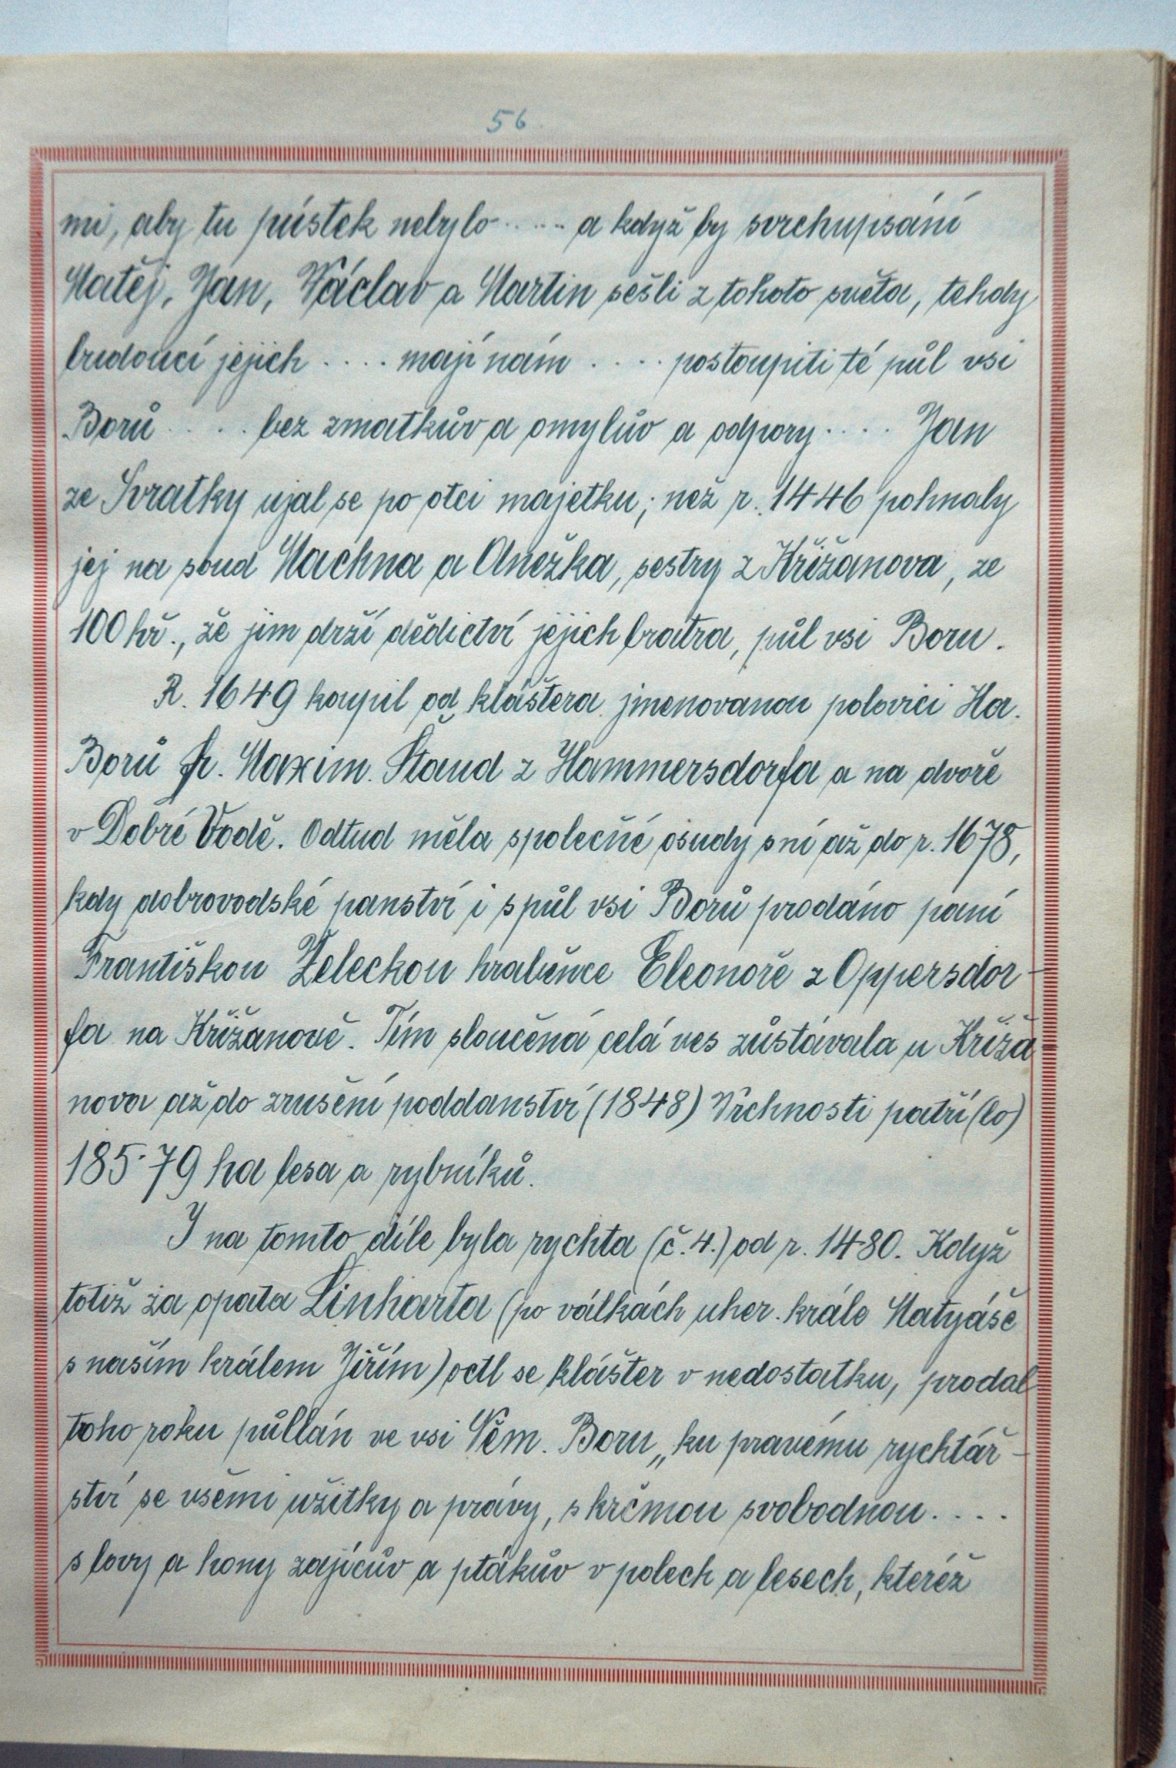 56.
mi, aby tu pústek nebylo ..... a když by svrchupsání
Matěj, Jan, Václav a Martin sešli z tohoto světa, tehdy
budoucí jejich .... mají nám .... postoupiti té půl vsi
Borů .... bez zmatkův a omylův a odpory .... Jan
ze Svratky ujal se po otci majetku; než r. 1446 pohnaly
jej na soud Machna a Anežka, sestry z Křižanova, ze
100 hř., že jim drží dědictví jejich bratra, půl vsi Boru.
R. 1649 koupil od kláštera jmenovanou polovici Ha.
Borů fr. Maxim. Štaud z Hammersdorfa a na dvoře
v Dobré Vodě. Odtud měla společné osudy s ní až do r. 1678,
kdy dobrovodské panství i s půl vsi Borů prodáno paní
Františkou Želeckou hraběnce Eleonoře z Oppersdor-
fa na Křižanově. Tím sloučená celá ves zůstávala u Křiža
nova až do zrušení poddanství (1848) Vrchnosti patří (lo)
185·79 ha lesa a rybníků.
I na tomto díle byla rychta (č. 4.) od r. 1480. Když
totiž za opata Linharta (po válkách uher. krále Matyáše
s naším králem Jiřím) octl se klášter v nedostatku, prodal
toho roku půllán ve vsi Něm. Boru „ku pravému rychtář-
ství se všemi užitky a právy, s krčmou svobodnou ....
s lovy a hony zajícův a ptákův v polech a lesech, kteréž